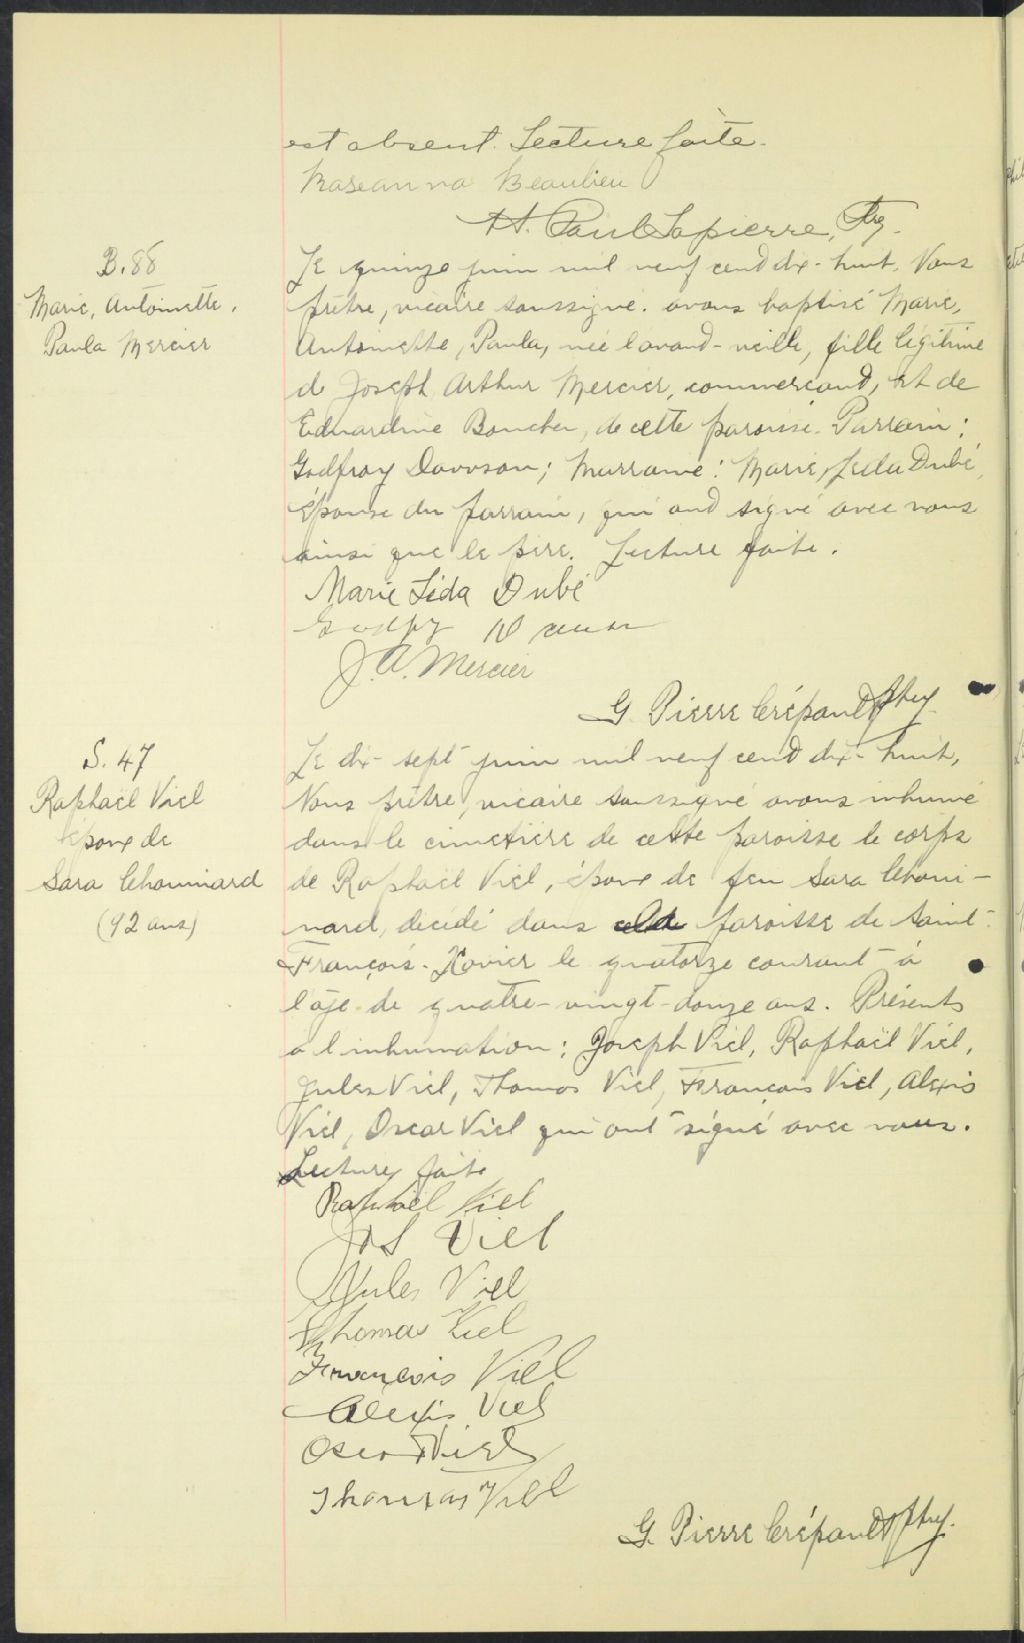 est absent. Lecture faite.
Roseanna Beaulieu
H. Paul Lapierre, Ptre.
B. 88
Marie, Antoinette,
Paula Mercier
Le quinze juin mil neuf cent dix-huit. Nous
prêtre, vicaire soussigné. avons baptisé Marie,
Antoinette, Paula, née l'avant-veille, fille légitime
de Joseph Arthur Mercier, commercant, et de
Eduardine Boucher, de cette paroisse. Parrain:
Godfroy Dawson; Marraine: Marie, Leda Dubé
épouse du parrain, qui ont signé avec nous
ainsi que le père. Lecture faite.
Marie Léda Dubé
J. A. Mercier
G. Pierre Crépault Ptre.
S. 47
Raphaël Viel
époux de
Sara Chouinard
(92 ans)
Le dix-sept juin mil neuf cent dix-huit,
Nous prêtre, vicaire soussigné avons inhumé
dans le cimetière de cette paroisse le corps
de Raphaël Viel, époux de feu Sara Choui-
nard, décédé dans paroisse de Saint-
François-Xavier le quatorze courant à
l'âge de quatre-vingt-douze ans. Présents
à l'inhumation: Joseph Viel, Raphaël Viel,
Jules Viel, Thomas Viel, François Viel, Alexis
Viel, Oscar Viel qui ont signé avec nous.
Lecture faite
Raphaël Viel
Jos Viel
Jules Viel
Thomas Viel
François Viel
Alexis Viel
Oscar Viel
Thomas Viel
G. Pierre Crépault Ptre.